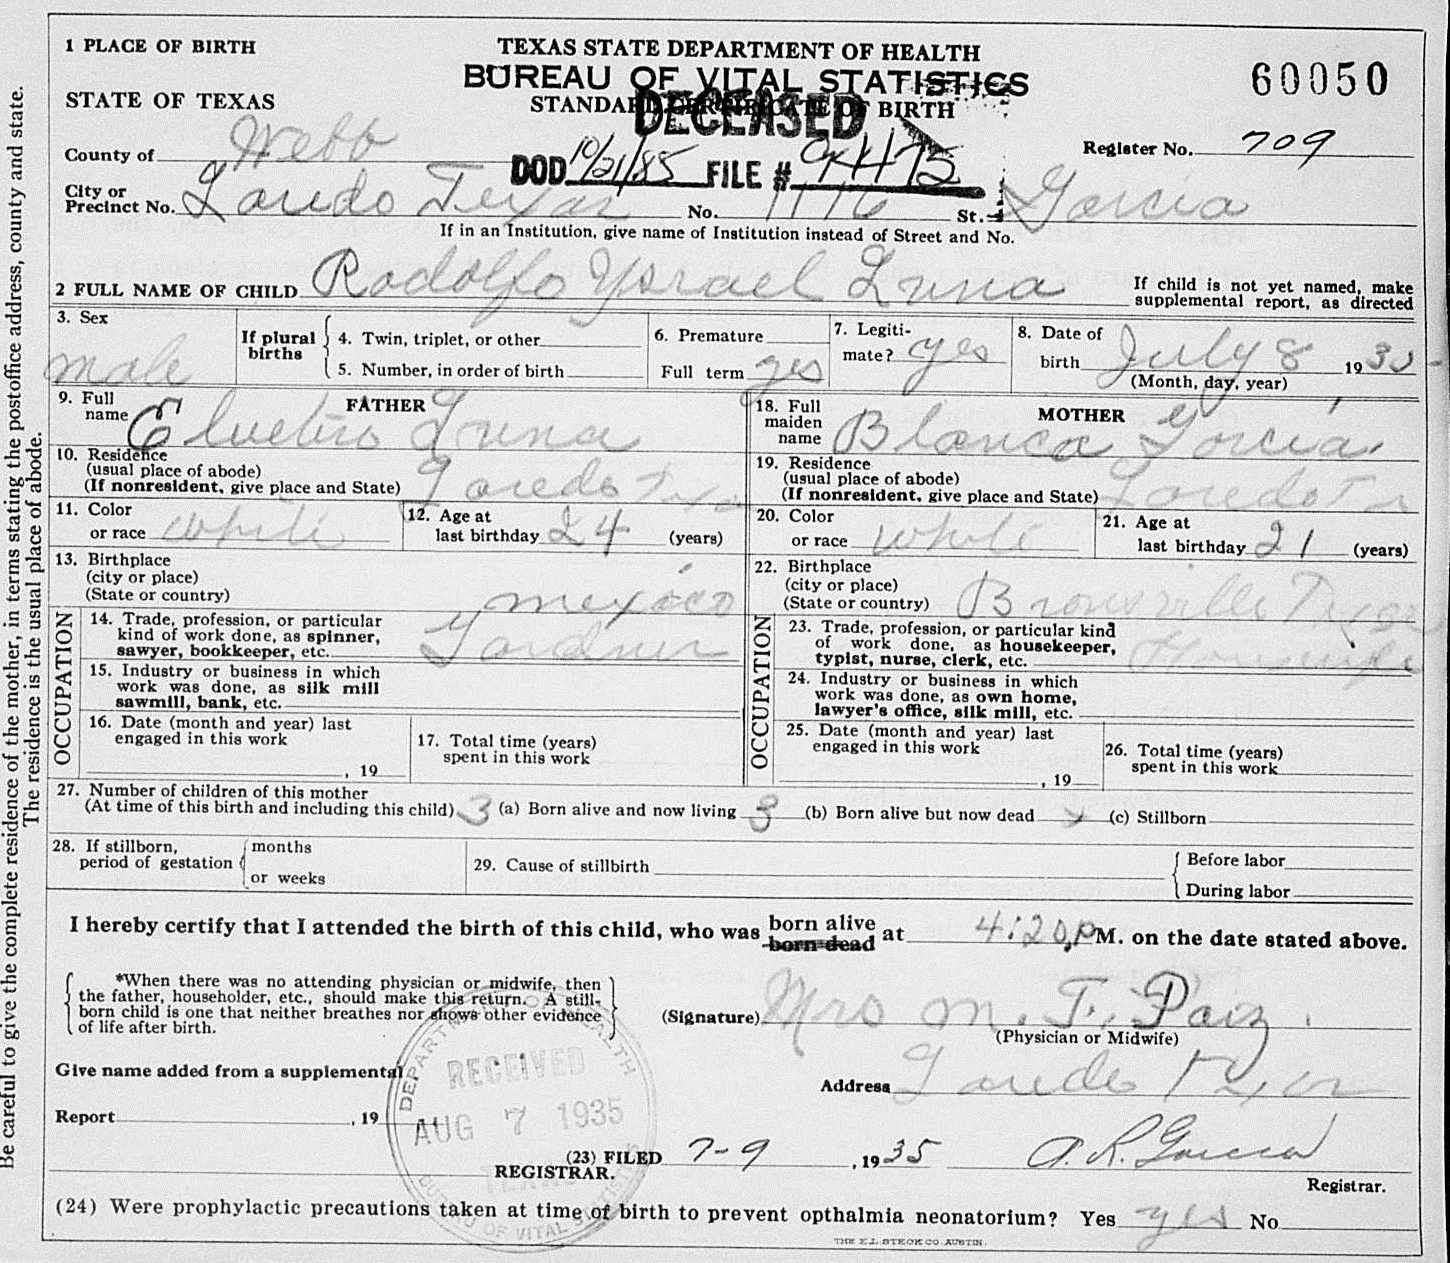 1 PLACE OF BIRTH
TEXAS STATE DEPARTMENT OF HEALTH
BUREAU OF VITAL STATISTICS
STANDARD CERTIFICATE OF BIRTH
60050
STATE OF TEXAS
DECEASED
County of Webb
DOD 10/21/85 FILE # 94475
Register No. 709
City or
Precinct No. Laredo Texas No. 1116 St. Garcia
If in an Institution, give name of Institution instead of Street and No.
2 FULL NAME OF CHILD Rodolfo Ysrael Luna
If child is not yet named, make
supplemental report, as directed
3. Sex male
If plural births
4. Twin, triplet, or other
5. Number, in order of birth
6. Premature
Full term yes
7. Legiti-
mate? yes
8. Date of
birth July 8 19
(Month, day, year)
FATHER
9. Full
name Luna
10. Residence
(usual place of abode)
(If nonresident, give place and State) Laredo Texas
11. Color
or race white
12. Age at
last birthday 24 (years)
13. Birthplace
(city or place)
(State or country) mexico
OCCUPATION
14. Trade, profession, or particular
kind of work done, as spinner,
sawyer, bookkeeper, etc. Gardner
15. Industry or business in which
work was done, as silk mill
sawmill, bank, etc.
16. Date (month and year) last
engaged in this work
, 19
17. Total time (years)
spent in this work
MOTHER
18. Full
maiden
name Blanca Garcia
19. Residence
(usual place of abode)
(If nonresident, give place and State) Laredo Tx
20. Color
or race white
21. Age at
last birthday 21 (years)
22. Birthplace
(city or place)
(State or country) Brownsville Texas
OCCUPATION
23. Trade, profession, or particular kind
of work done, as housekeeper,
typist, nurse, clerk, etc. Housewife
24. Industry or business in which
work was done, as own home,
lawyer's office, silk mill, etc.
25. Date (month and year) last
engaged in this work
, 19
26. Total time (years)
spent in this work
27. Number of children of this mother
(At time of this birth and including this child) 3 (a) Born alive and now living 3 (b) Born alive but now dead (c) Stillborn
28. If stillborn,
period of gestation
months
or weeks
29. Cause of stillbirth
Before labor
During labor
I hereby certify that I attended the birth of this child, who was born alive born dead at 4:20 P M. on the date stated above.
*When there was no attending physician or midwife, then
the father, householder, etc., should make this return. A still-
born child is one that neither breathes nor shows other evidence
of life after birth.
(Signature) Mrs M. F. Paiz
(Physician or Midwife)
Give name added from a supplemental
Address Laredo Texas
Report , 19
DEPARTMENT OF HEALTH
RECEIVED
AUG 7 1935
TEXAS
BUREAU OF VITAL STATISTICS
(23) FILED 7-9, 1935 A. R. Garcia
REGISTRAR.
Registrar.
(24) Were prophylactic precautions taken at time of birth to prevent opthalmia neonatorium? Yes yes No
THE E.L. STECK CO. AUSTIN.
Be careful to give the complete residence of the mother, in terms stating the postoffice address, county and state.
The residence is the usual place of abode.